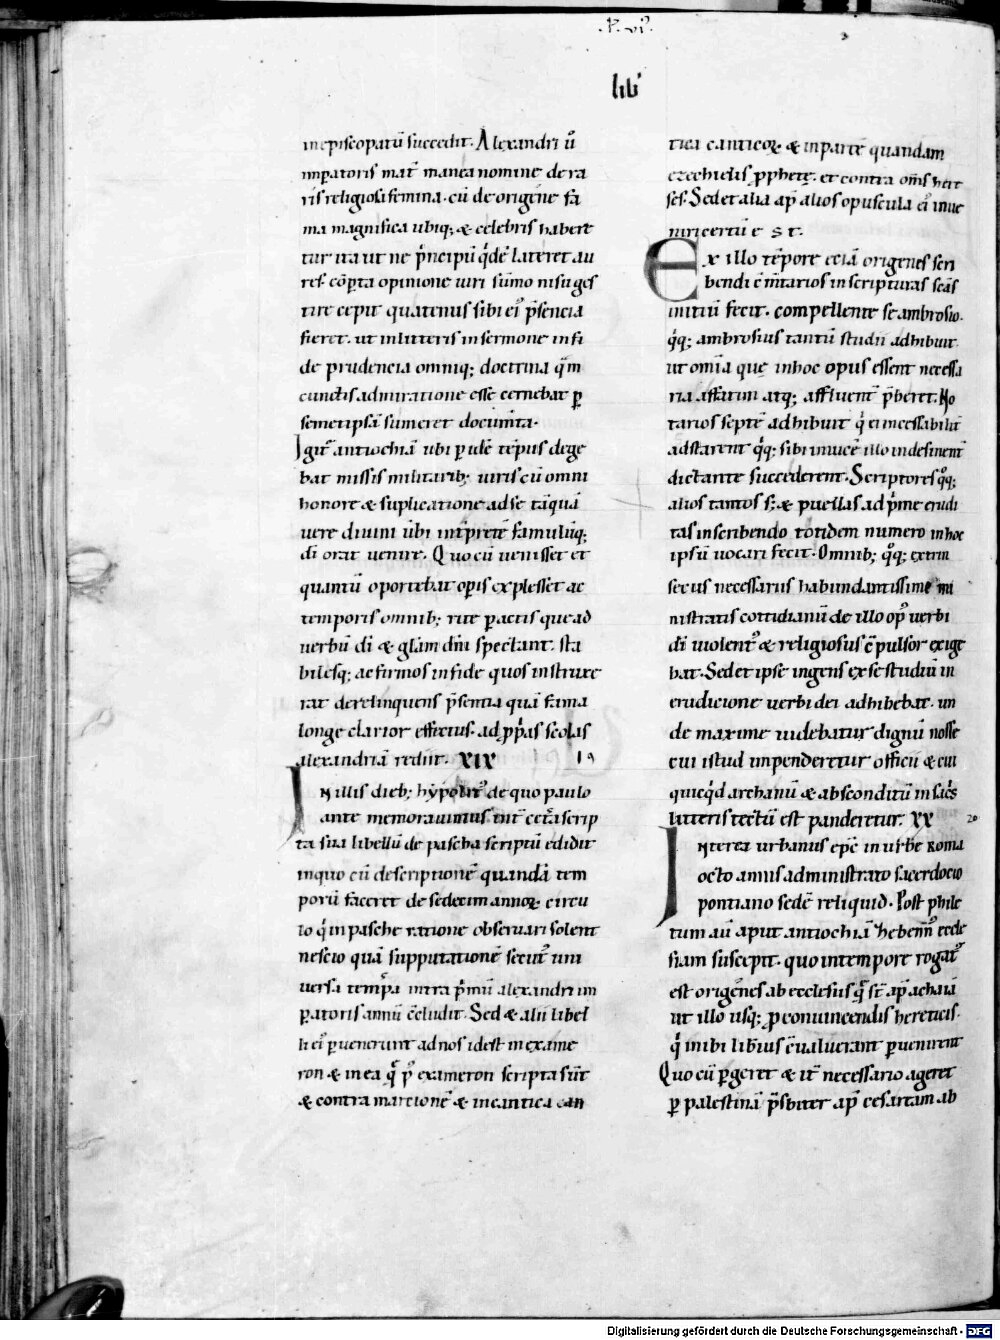 .P. vi.
lib'
in episcopatū succedit. Alexandri ů
imꝑatoris mat̄ manea nomine de ra
ris religiosa femina. cū de origene fa
ma magnifica ubiq; & celebris habere
tur ita ut ne p̍ncipū q̍dē lateret au
res. cōꝑta opinione uiri sūmo nisu ges
tire cepit quatenus sibi ei᷒ p̄sencia
fieret. ut in litteris in sermone in fi
de prudencia omniq; doctrina q̄m
cunctis admiratione esse cernebat ꝑ
semetipsā sumeret documīta.
Igit᷒ antiochiā ubi ꝑ idē tēpus dege
bat missis militarib; uiris cū omni
honore & suplicatione ad se tāquā
uere diuini ūbi int̄pretē famulūq;
dī orat uenire. Quo cū uenisset et
quantū oportebat oꝑis explesset ac
temporis omnib; rite ꝑactis que ad
uerbū dī & glām dn̄i spectant. sta
bilesq; ac firmos in fide quos instruxe
rat derelinquens p̄sentia quā fama
longe clarior effectus. ad ꝓp̍as scolas
alexandriā rediit. XIX 19
In illis dieb; hypolit᷒ de quo paulo
ante memorauimus. int̄ cet̄a scrip
ta sua libellū de pascha scriptū edidit
in quo cū descriptionē quandā tem
porū faceret de sedecim annoꝝ circu
lo q̍ in pasche ratione obseruari solent
nescio quā supputationē secut᷒ uni
uersa temp̄a intra p̍mū alexandri im
ꝑatoris annū c̄cludit. Sed & alii libel
li ei᷒ ꝑuenerunt ad nos id est in exame
ron & in ea q̄ p᷒ exameron scripta sūt
& contra marcionē & in cantica can
tica canticoꝝ. & in partē quandam
ezechielis ꝓphetę. et contra om̄s here
ses. Sed et alia ap̄ alios opuscula ei᷒ inue
niri certū e s t.
Ex illo tēpore eciā origenes scri
bendi c̄m̄tarios in scripturas sc̄as
initiū fecit. compellente se ambrosio.
q̍q; ambrosius tantū studii adhibuit
ut om̄ia quę in hoc opus essent necessa
ria affatim atq; affluent̄ p̄beret. No
tarios septē adhibuit q̍ ei incessabilit̄
adstarent q̍q; sibi inuicē illo indesinent̄
dictante succederent. Scriptores q᷒q;
alios tantos s; & puellas ad p̍me erudi
tas in scribendo totidem numero in hoc
ipsū uocari fecit. Omnib; q᷒q; extrin
secus necessariis habundantissime mi
nistratis cottidianū de illo op᷒ uerbi
dī uiolent᷒ & religiosius c̄pulsor exige
bat. Sed et ipse ingens ex se studiū in
erudicione uerbi dei adhibebat. un
de maxime uidebatur dignū nosse
cui istud impenderetur officiū & cui
quicq̍d archanū & absconditū in sac̍s
litteris tectū est panderetur. XX 20
Interea urbanus epc̄ in urbe roma
octo annis administrato sacerdocio
pontiano sedē reliquid. Post phile
tum aū aput antiochiā hebenn᷒ eccle
siam suscepit. quo in tempore rogat᷒
est origenes ab ecclesiis q̄ st̄ ap̄ achaiā
ut illo usq; ꝓ conuincendis hereticis.
q̍ inibi lib̍ius c̄ualuerant ꝑuenirent
Quo cū ꝑgeret & it̄ necessario ageret
ꝑ palestinā p̄sbiter ap̄ cesaream ab
Digitalisierung gefördert durch die Deutsche Forschungsgemeinschaft - DFG